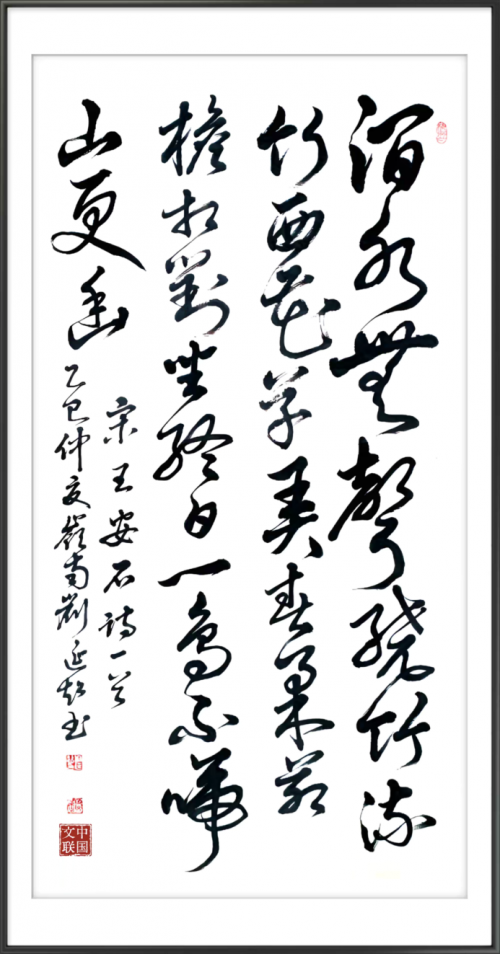 澗水無聲繞竹流
竹西花草弄春柔茅
檐相對坐終日一鳥不啼
山更幽
宋王安石詩一首
乙巳仲夏嶺南劉延超書
中国文联